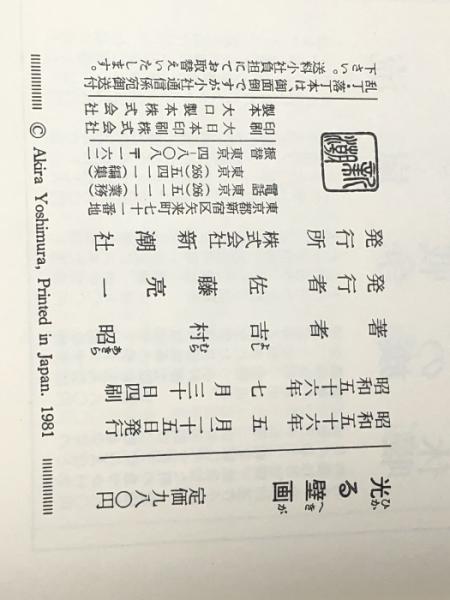 光る壁画
ひか
へきが
定価九八〇円
昭和五十六年五月二十五日発行
昭和五十六年七月三十日四刷
著者 吉村昭
よしむらあきら
発行者 佐藤亮一
発行所 株式会社新潮社
東京都新宿区矢来町七十一番地
電話 東京(266)五一一一(業務)
東京(266)五四一一(編集)
振替 東京四―八〇八 〒一六二
印刷 大日本印刷株式会社
製本 大口製本株式会社
乱丁・落丁本は、御面倒ですが小社通信係宛御送付
下さい。送料小社負担にてお取替えいたします。
© Akira Yoshimura, Printed in Japan. 1981